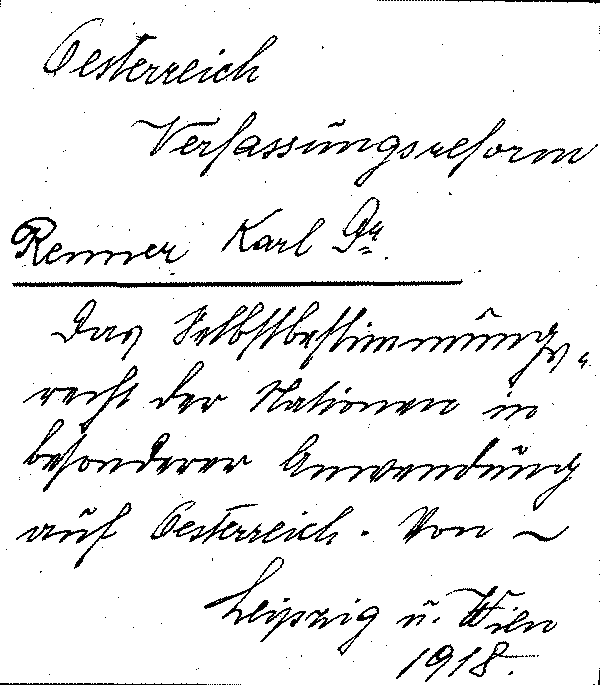 Oesterreich
Verfassungsreform
Renner Karl Dr
Das Selbstbestimmungs-
recht der Nationen in
besonderer Anwendung
auf Oesterreich. Von ~
Leipzig u. Wien
1918.